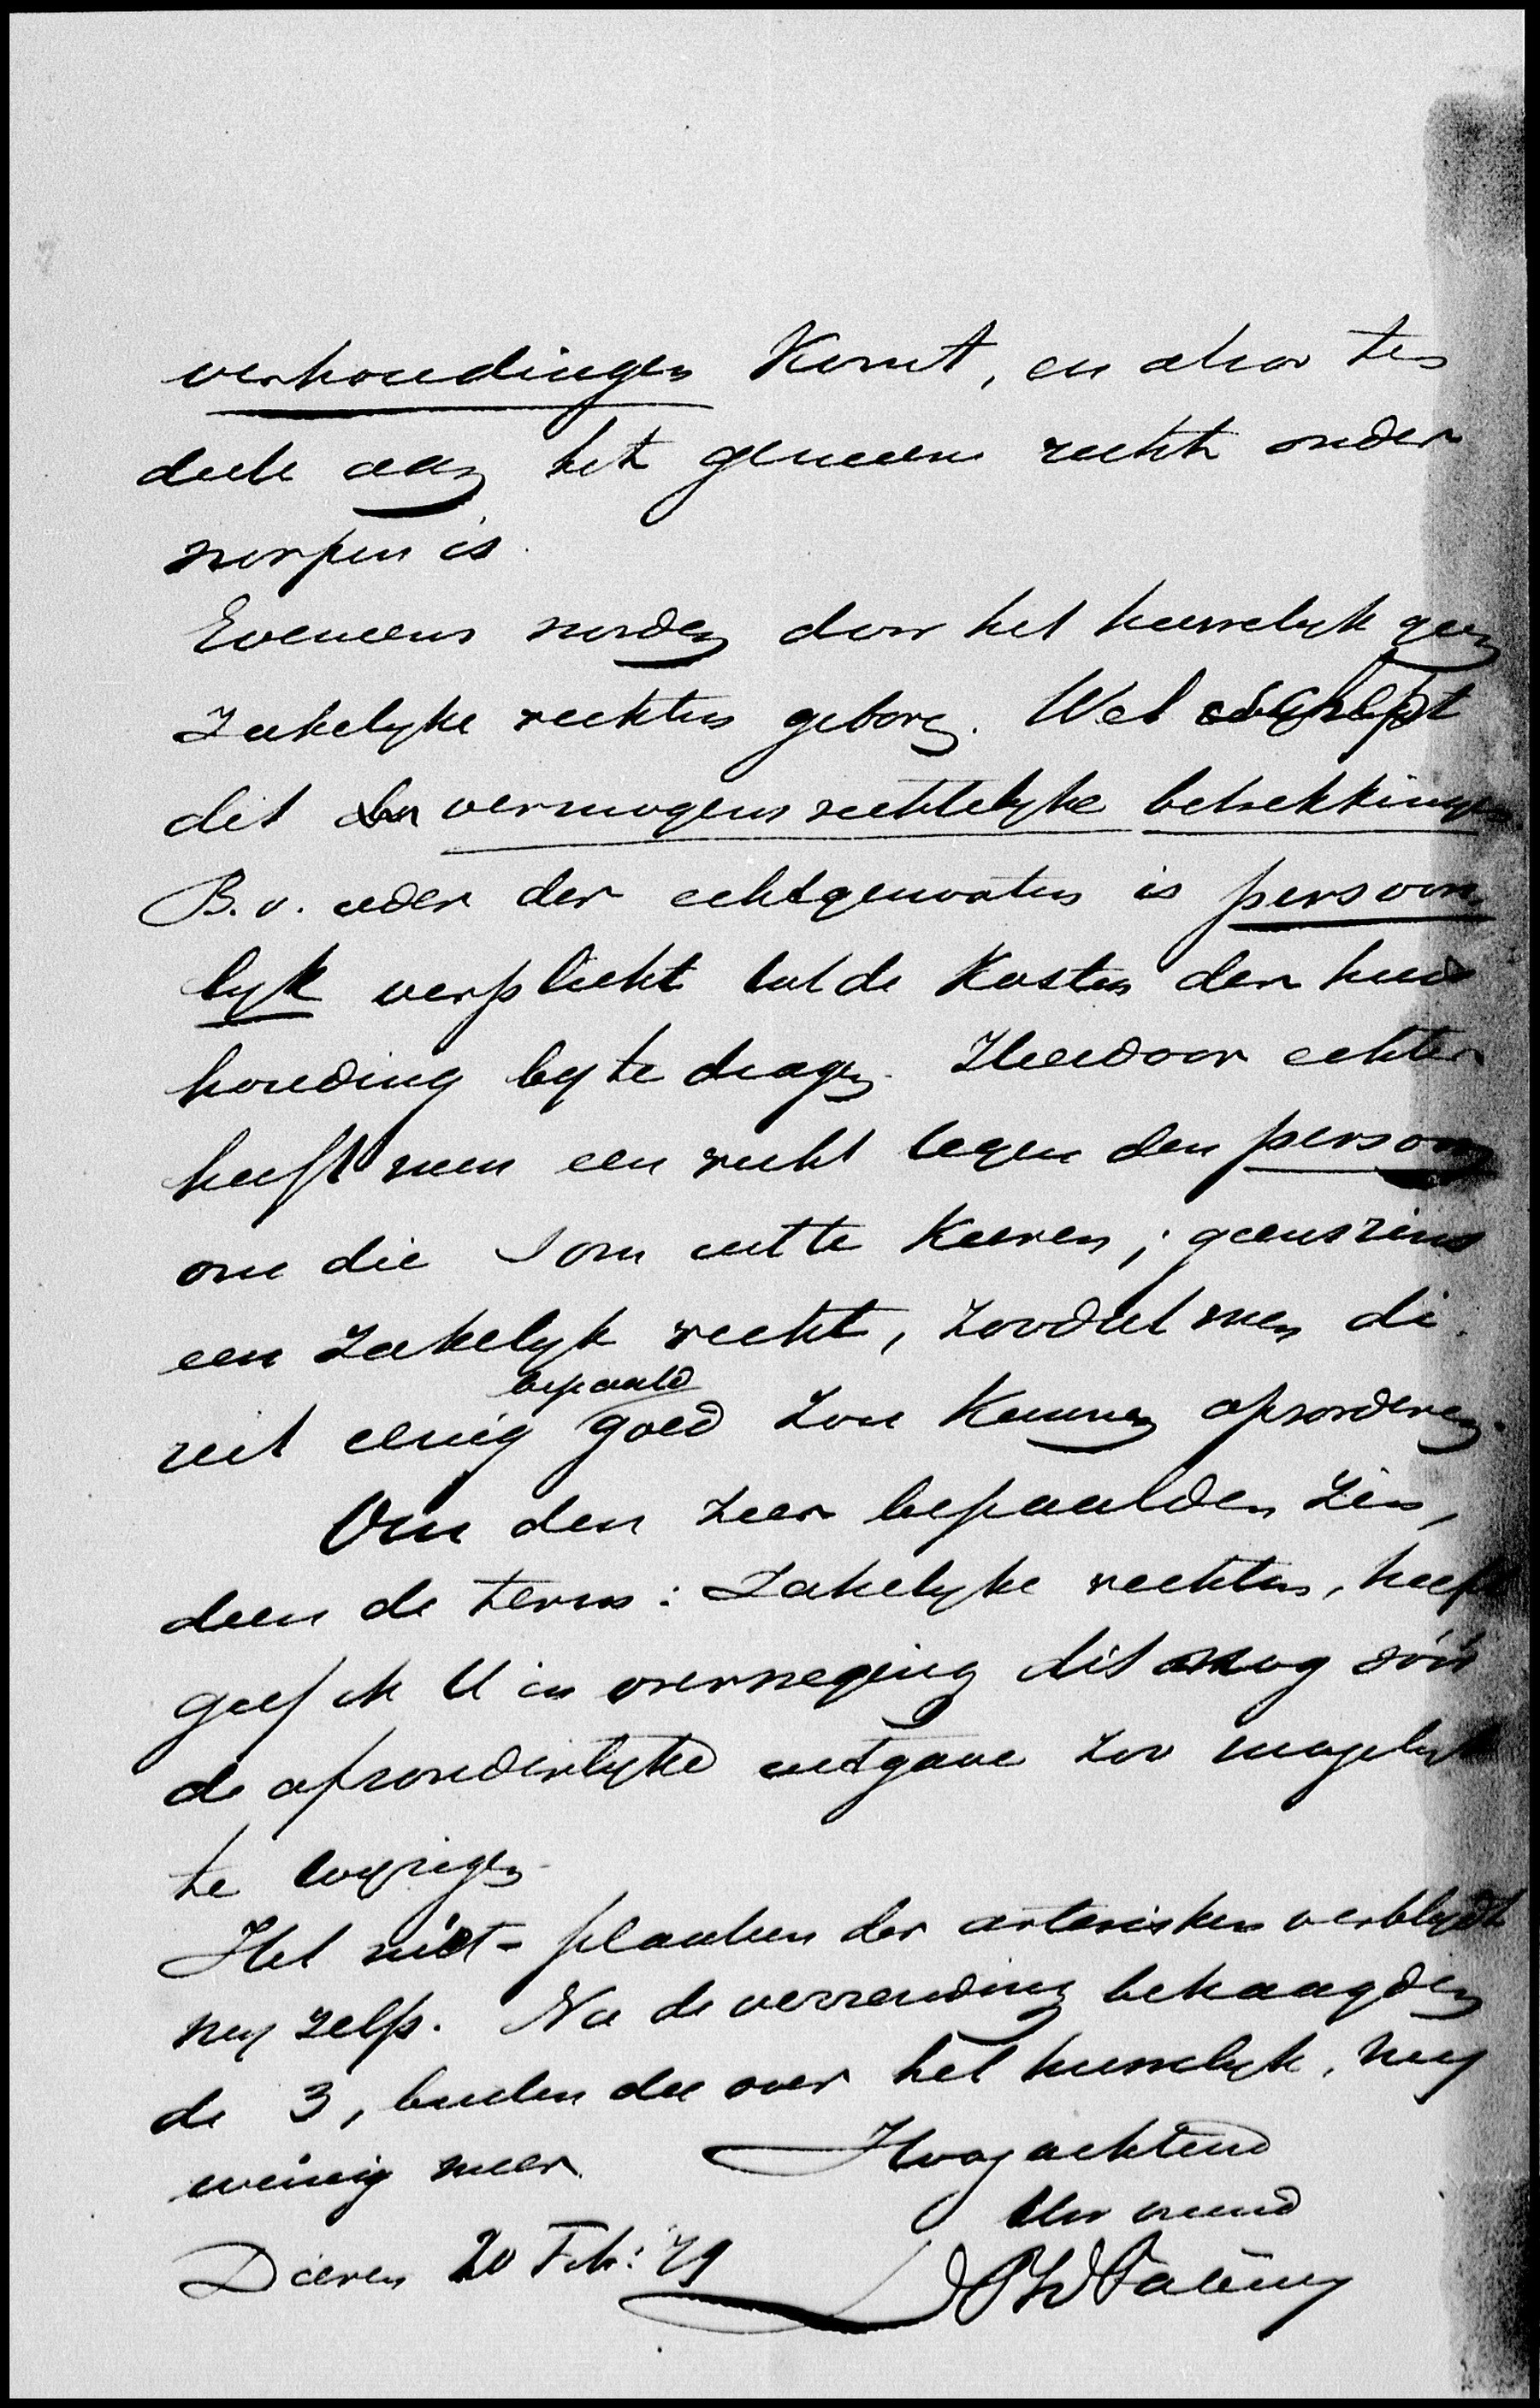 verhoudingen komt, en door ten
deele aan het gemeene recht onder
worpen is.
Eveneens worden door het huwelyk geen
zakelyke rechten geboren. Wel schept
dit vermogensrechtelyke betrekkingen
B.v. ieder der echtgenooten is persoon-
lyk verplicht tot de kosten der huis
houding by te dragen. Hierdoor echter
heeft men een recht tegen den persoon
om die som uit te keeren; geenszins
een zakelyk recht, zoodat men di
uit eenig bepaald goed zou kunnen afvorderen.
Om den zeer bepaalden zin,
dien de term: zakelyke rechten, heeft
geef ik U in overweging dit nog vóór
de afzonderlyke uitgave zoo mogelyk
te wyzigen.
Het niet-plaatsen der asterisken verblydt
my zelfs. Na de verzending behaagden
de 3, buiten die over het huwelyk, my
weinig meer. Hoogachtend
Uw vriend
Dieren 20 Feb: 79